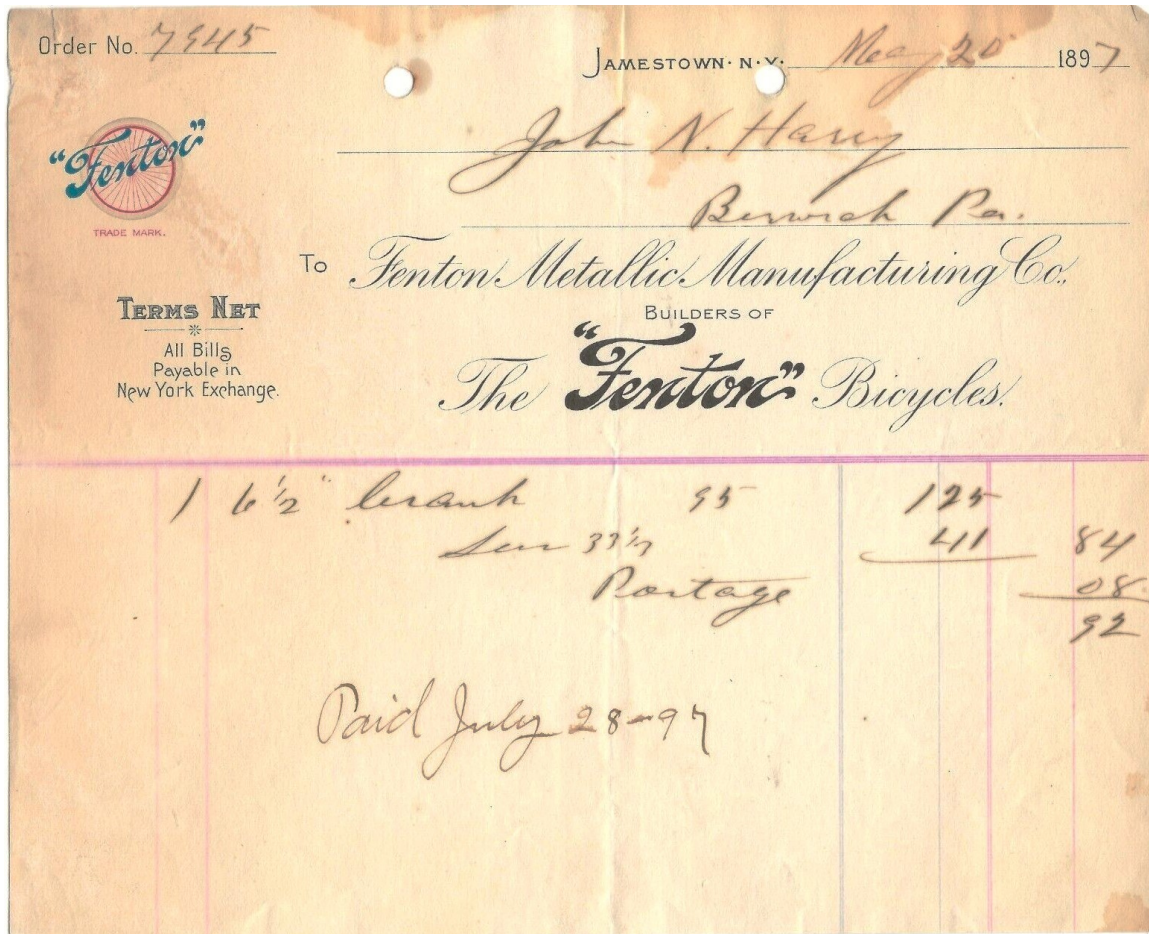 Order No. 7945
JAMESTOWN. N.Y. May 20 1897
John N. Harry
Berwick Pa.
"Fenton"
TRADE MARK.
To Fenton Metallic Manufacturing Co.,
BUILDERS OF
The "Fenton" Bicycles.
TERMS NET
All Bills
Payable in
New York Exchange.
1 6 1/2" Crank 95 125
Less 33 1/3 41 84
Postage 08
92
Paid July 28-97